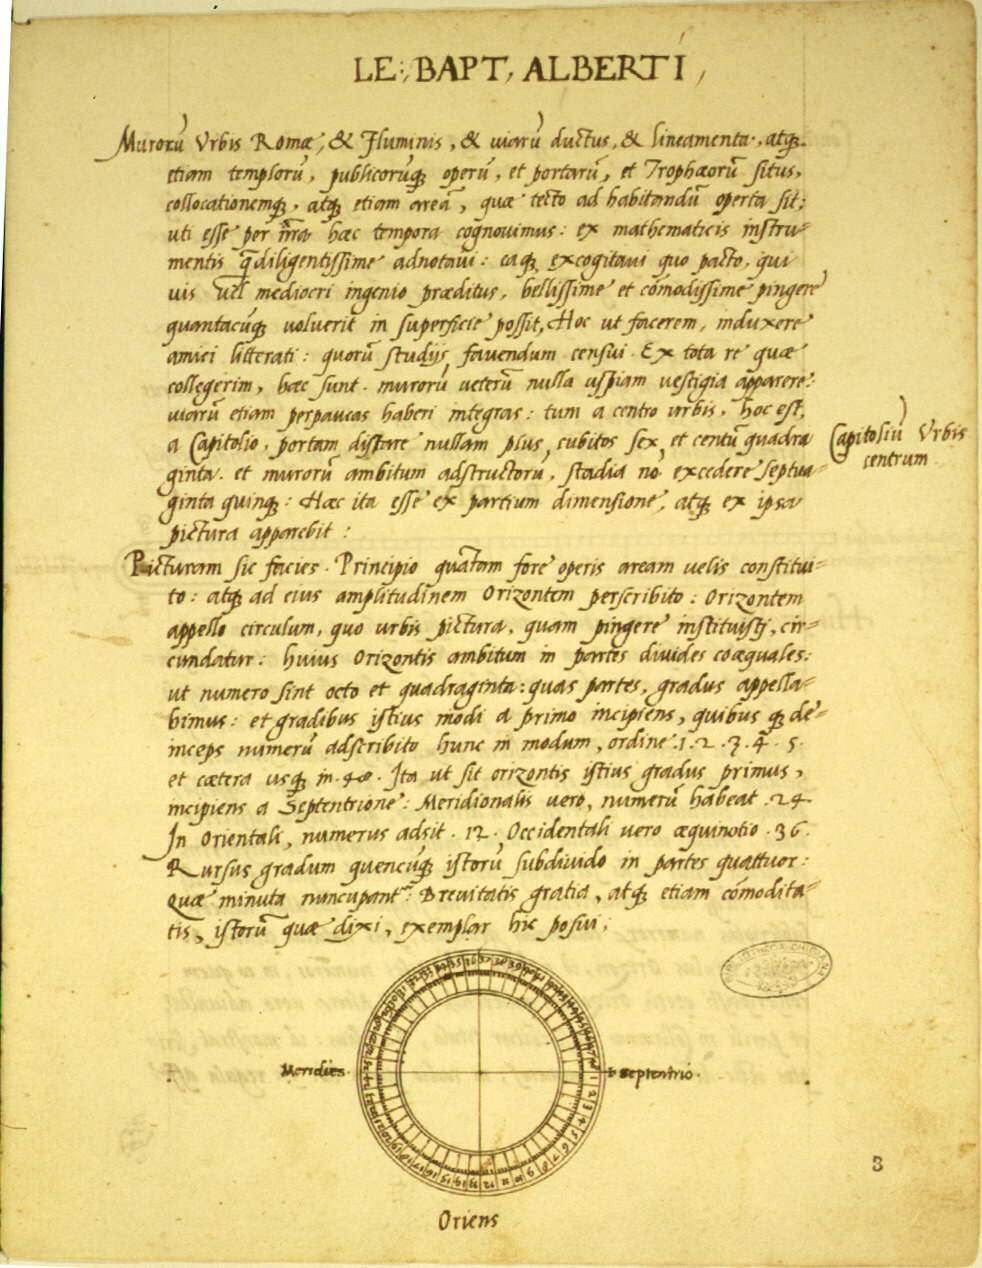 LE: BAPT, ALBERTI,
Murorū Vrbis Romæ, & Fluminis, & uiarū ductus, & lineamenta, atq;
etiam templorū, publicorūq; operū, et portarū, et Trophæorū situs,
collocationemq;, atq; etiam areā, quæ tecto ad habitandū operta sit;
uti esse per nr̄a hæc tempora cognouimus: ex mathematicis instru=
mentis q̄diligentissime adnotaui: eaq; excogitaui quo pacto, qui
uis uel mediocri ingenio præditus, bellissime et cōmodissime pingere
quantacūq; uoluerit in superficie possit, Hoc ut facerem, induxere
amici litterati: quorū studijs fauendum censui. Ex tota re quæ
collegerim, hæc sunt. murorū ueterū nulla uspiam uestigia apparere:
uiarū etiam perpaucas haberi integras: tum a centro urbis, hoc est,
a Capitolio, portam distare nullam plus cubitos sex et centū quadra
ginta. et murorū ambitum adstructorū, stadia nō excedere septua=
ginta quinq;: Hæc ita esse ex partium dimensione, atq; ex ipsa
pictura apparebit:
Capitoliū Vrbis
centrum
Picturam sic facies. Principio quātam fore operis aream uelis constitui=
to: atq; ad eius amplitudinem Orizontem perscribito: Orizontem
appello circulum, quo urbis pictura, quam pingere instituisti, cir=
cundatur: huius Orizontis ambitum in partes diuides coæquales:
ut numero sint octo et quadraginta: quas partes, gradus appella=
bimus: et gradibus istius modi a primo incipiens, quibus q; de=
inceps numerū adscribito hunc in modum, ordine .1. 2. 3. 4. 5.
et cætera usq; in .48. Ita ut sit orizontis istius gradus primus,
incipiens a Septentrione: Meridionalis uero, numerū habeat .24.
In Orientali, numerus adsit .12. Occidentali uero æquinotio .36.
Rursus gradum quencūq; istorū subdiuido in partes quattuor:
Quæ minuta nuncupant.r Breuitatis gratia, atq; etiam cōmodita=
tis, istorū quæ dixi, exemplar hic posui;
Meridies.
septentrio.
1 2 3 4 5 6 7 8 9 10 11 12 13 14 15 16 17 18 19
Oriens
3